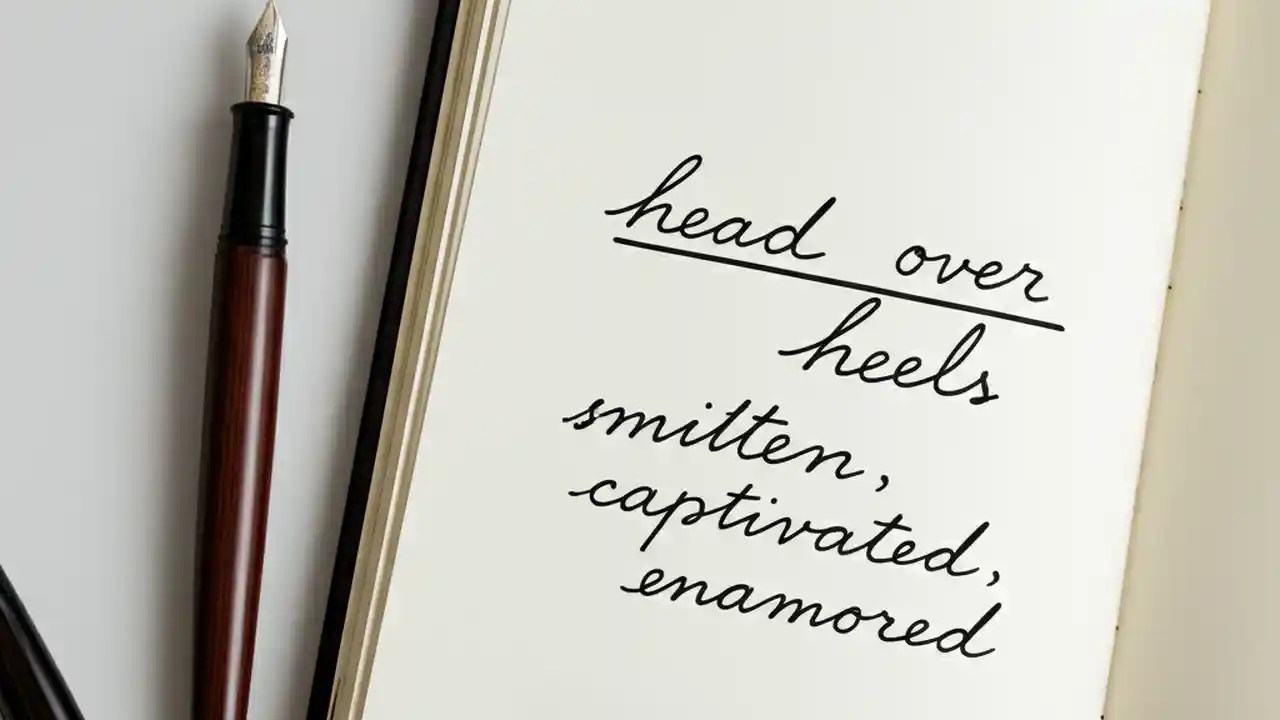 head over
heels
smitten,
captivated,
enamored